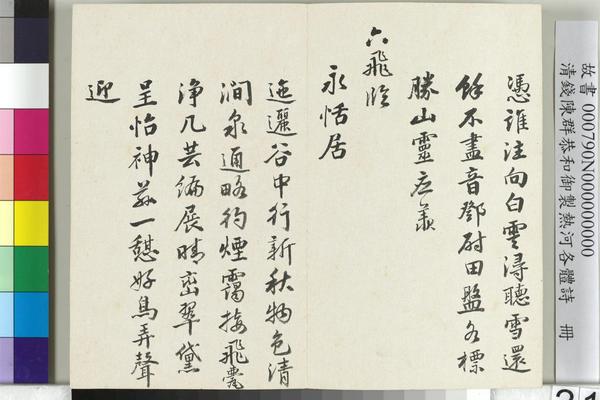 故書 000790N000000000
清錢陳群恭和御製熱河各體詩 冊
憑誰注向白雲潯聽雪還
餘不盡音鄧尉田盤各標
勝山靈應羨
六飛臨
永恬居
迤邐谷中行新秋物色清
澗泉通略彴煙靄接飛甍
淨几芸編展晴巒翠黛
呈怡神茲一憩好鳥弄聲
迎